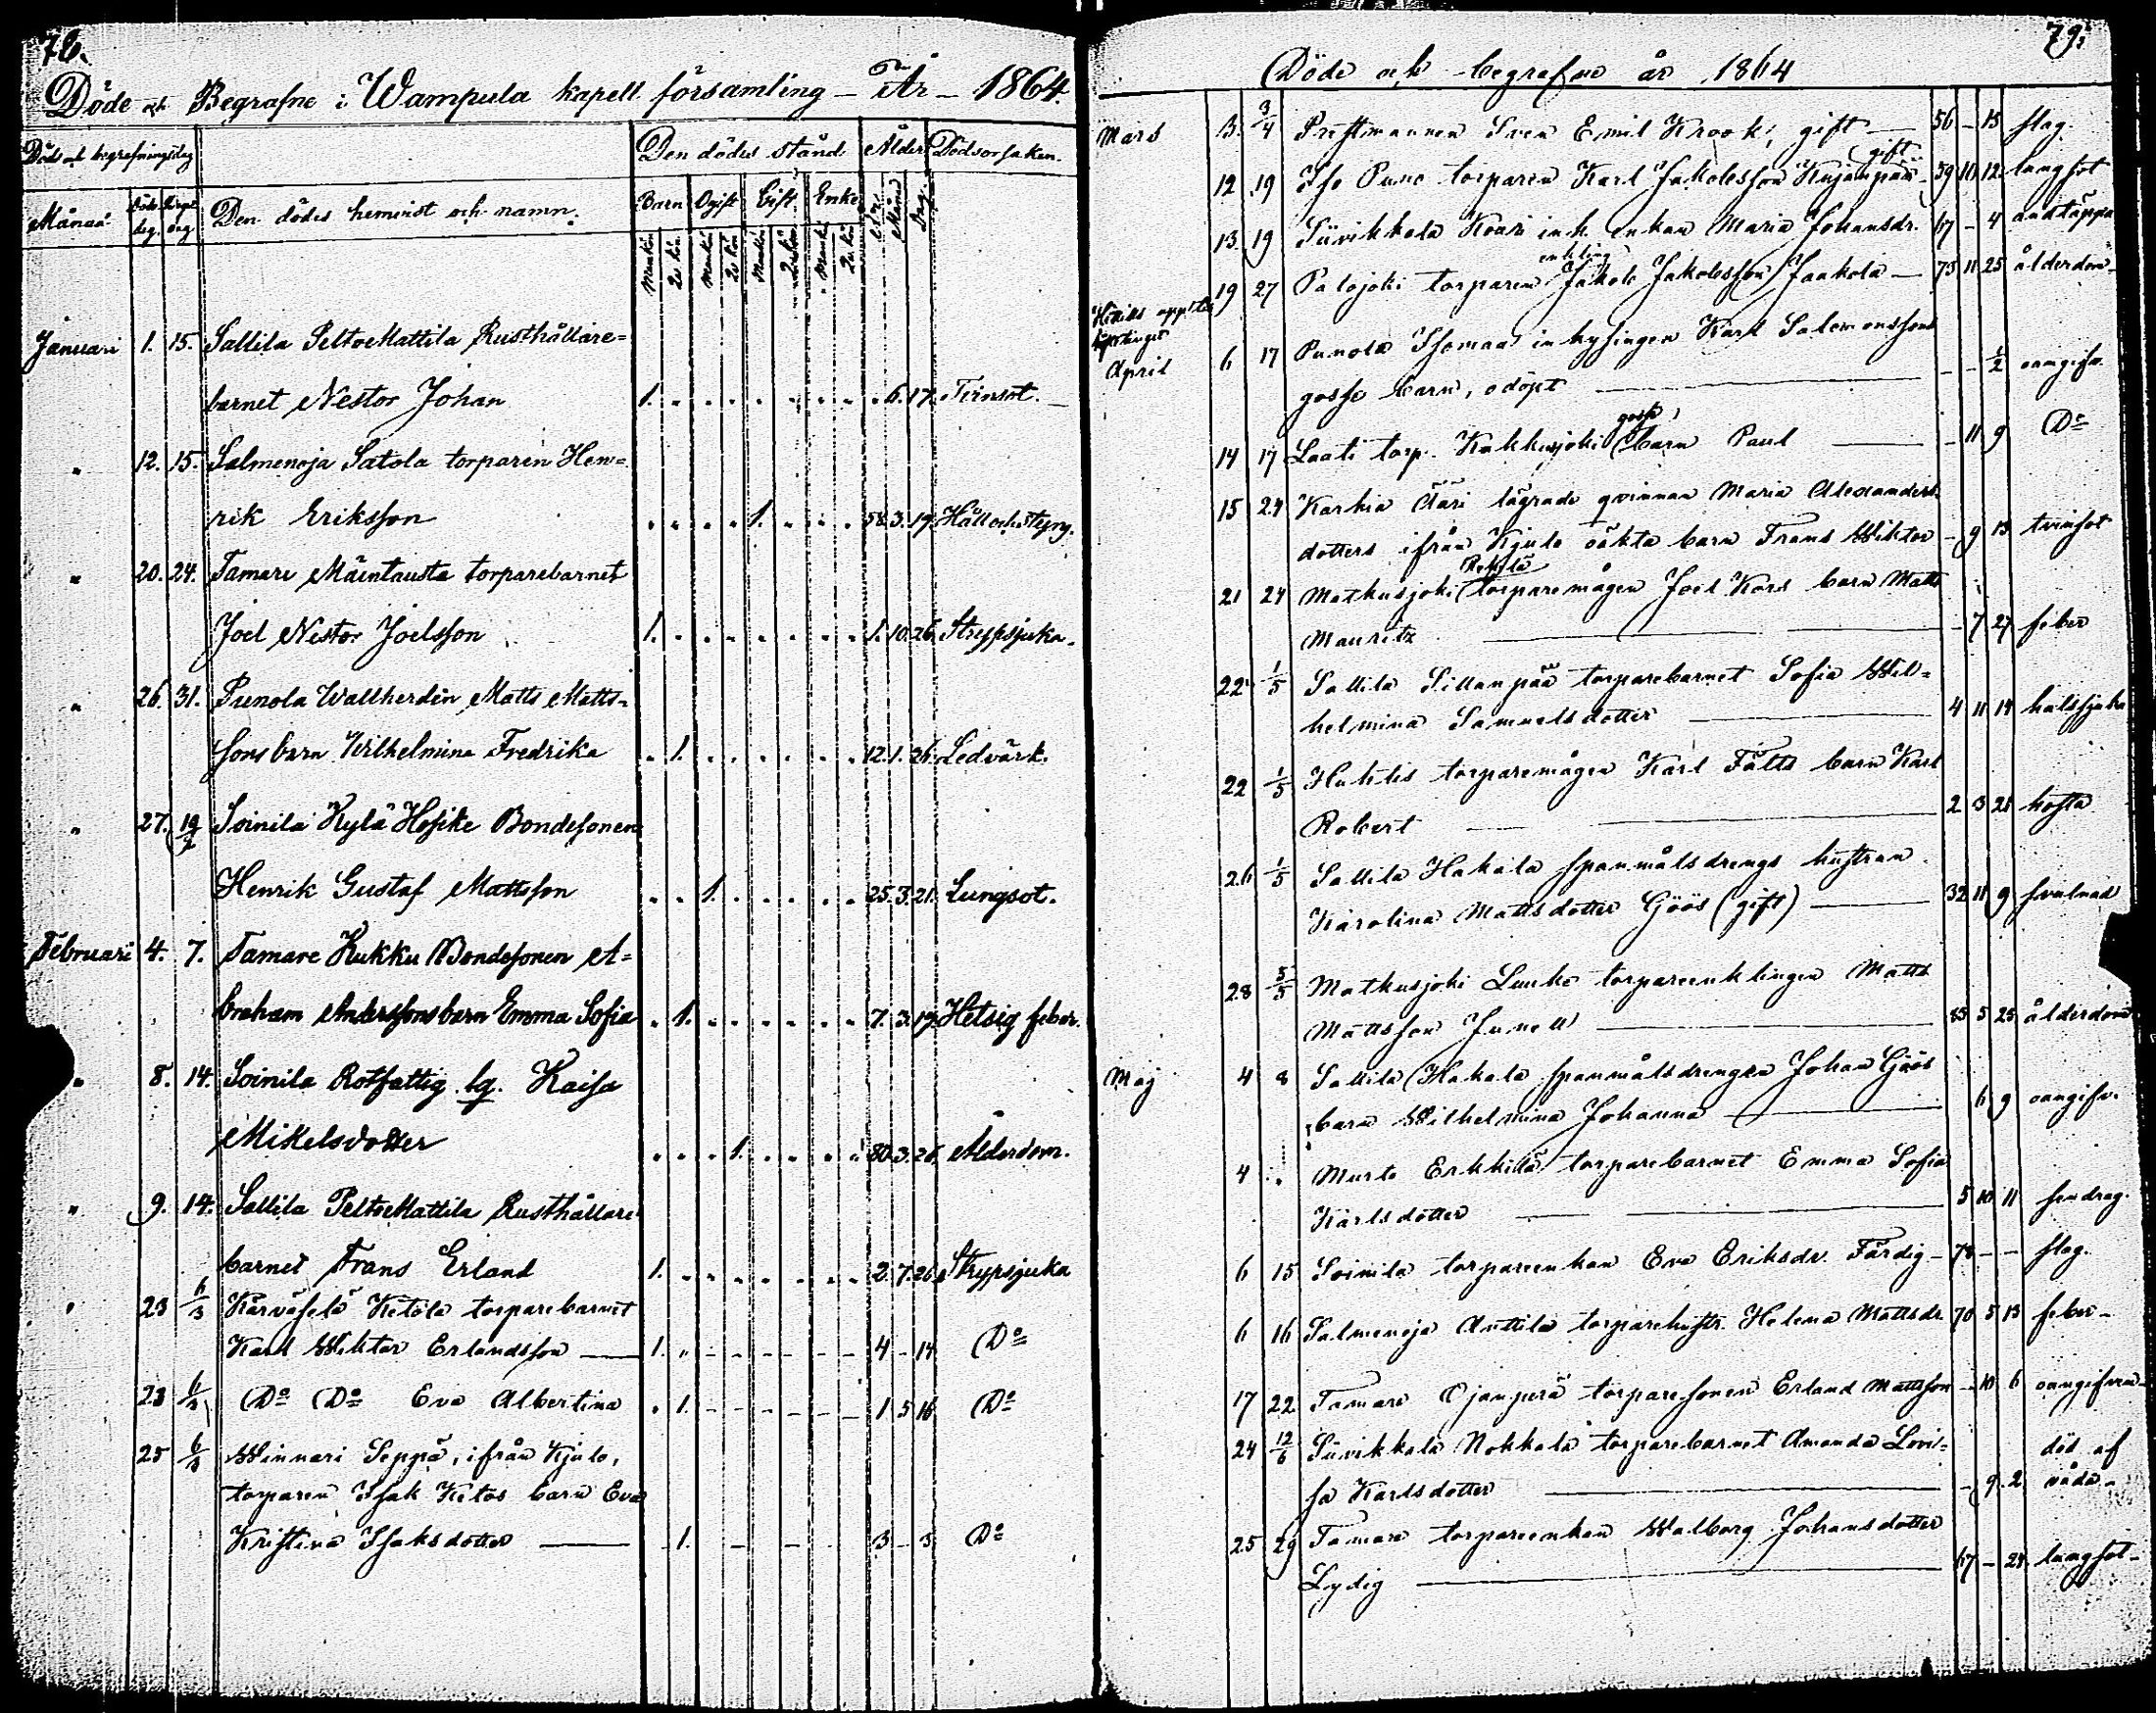 78.
Döde och Begrafne i Wampula kapell församling - År - 1864.
Död och begrafningsdag
Den dödes stånd. Ålder Dödsorsaken.
Månad Den dödes hemvist och namn. Barn Ogift Gift Enke År Månd Dag.
Mankön Qv. kön Mankön Qv. kön Mankön Qv. kön Mankön Qv. kön
Januari 1. 15. Sallila PeltoMattila Rusthållare=
barnet Nestor Johan 1. 6. 17. Tvinsot.
" 12. 15. Salmenoja Satola torparen Hen=
rik Eriksson 1. 58. 3. 19. Håll och styng.
" 20. 24. Tamare Mäentausta torparebarnet
Joel Nestor Joelsson 1. 1. 10. 26. Strypsjuka.
" 26. 31. Punola Wallherdën Matts Matts=
sons barn Wilhelmina Fredrika 1. 12. 1. 26. Ledvärk.
" 27. 19/2 Soinila Kylä Hossike Bondesonen
Henrik Gustaf Mattsson 1. 25. 3. 21. Lungsot.
Februari 4. 7. Tamare Kukku Bondesonen A=
braham Anderssons barn Emma Sofia 1. 7. 3. 19. Hetsig feber.
" 8. 14. Soinila Rotfattig lg. Kaisa
Mikelsdotter 1. 80. 3. 26. Ålderdom.
" 9. 14. Sallila PeltoMattila Rusthållare
barnet Frans Erland 1. 2. 7. 26. Strypsjuka
" 23 6/3 Kärväselä Ketola torparebarnet
Karl Wiktor Erlandsson 1. 4 - 14 Do
23 6/3 Do Do Eva Albertina 1. 1 5 16 Do
25 6/3 Winnari Seppä, ifrån Kjulo,
torparen Isak Ketos barn Eva
Kristina Isaksdotter 1. 3 - 3 Do
79.
Döde och begrafne år 1864
Mars 3. 3/4 Prestmannen Sven Emil Krook, gift 56 - 15 slag.
gift
12 19 Iso Puno torparen Karl Jakobsson Kujanpää 39 10 12 lungsot
13 19 Siivikkala Koari inh. enkan Maria Johansdr. 67 - 4 andtäppa
enkling
19 27 Palojoki torparen Jakob Jakobsson Jaakola 75 11 25 ålderdom
April 6 17 Punola Isomaa inhysingen Karl Salomonssons
gosse barn, odöpt - - 1/2 oangifv.
gosse
14 17 Laati torp. Kukkurjoki barn Paul - 11 9 Do
15 24 Karhia Ääri lägrade qvinnan Maria Alexanders
dotters ifrån Kjulo oäkta barn Frans Wiktor - 9 13 tvinsot
21 24 Matkusjoki torparemågen Joel Kors barn Matts
Mauritz - 7 27 feber
22 1/5 Sallila Sillanpää torparebarnet Sofia Wil=
helmina Samuelsdotter 4 11 14 halssjuka
22 1/5 Huhtis torparemågen Karl Fälts barn Karl
Robert 2 3 21 hosta
26 1/5 Sallila Hakala spanmålsdrengs hustrun
Karolina Mattsdotter Göös (gift) 32 11 9 svulnad
28 5/5 Matkusjoki Luuko torpareenklingen Matts
Mattsson Junell 85 5 25 ålderdom
Maj 4 8 Sallila Hakala spanmålsdrengen Johan Göös
barn Wilhelmina Johanna 6 9 oangifv.
4 " Murto Erkkilä torparebarnet Emma Sofia
Karlsdotter 5 10 11 sendrag.
6 15 Soinila torpareenkan Eva Eriksdr. Färdig 78 - - slag.
6 16 Salmenoja Anttila torparehustr. Helena Mattsdr. 70 5 13 feber
17 22 Tamare Ojanperä torparesonen Erland Mattsson - 10 6 oangifven
24 12/6 Siivikkala Nokkala torparebarnet Amanda Lovi= död af
sa Karlsdotter - 9 2 våda
25 29 Tamare torpareenkan Walborg Johansdotter
Lydig 67 - 24 lungsot